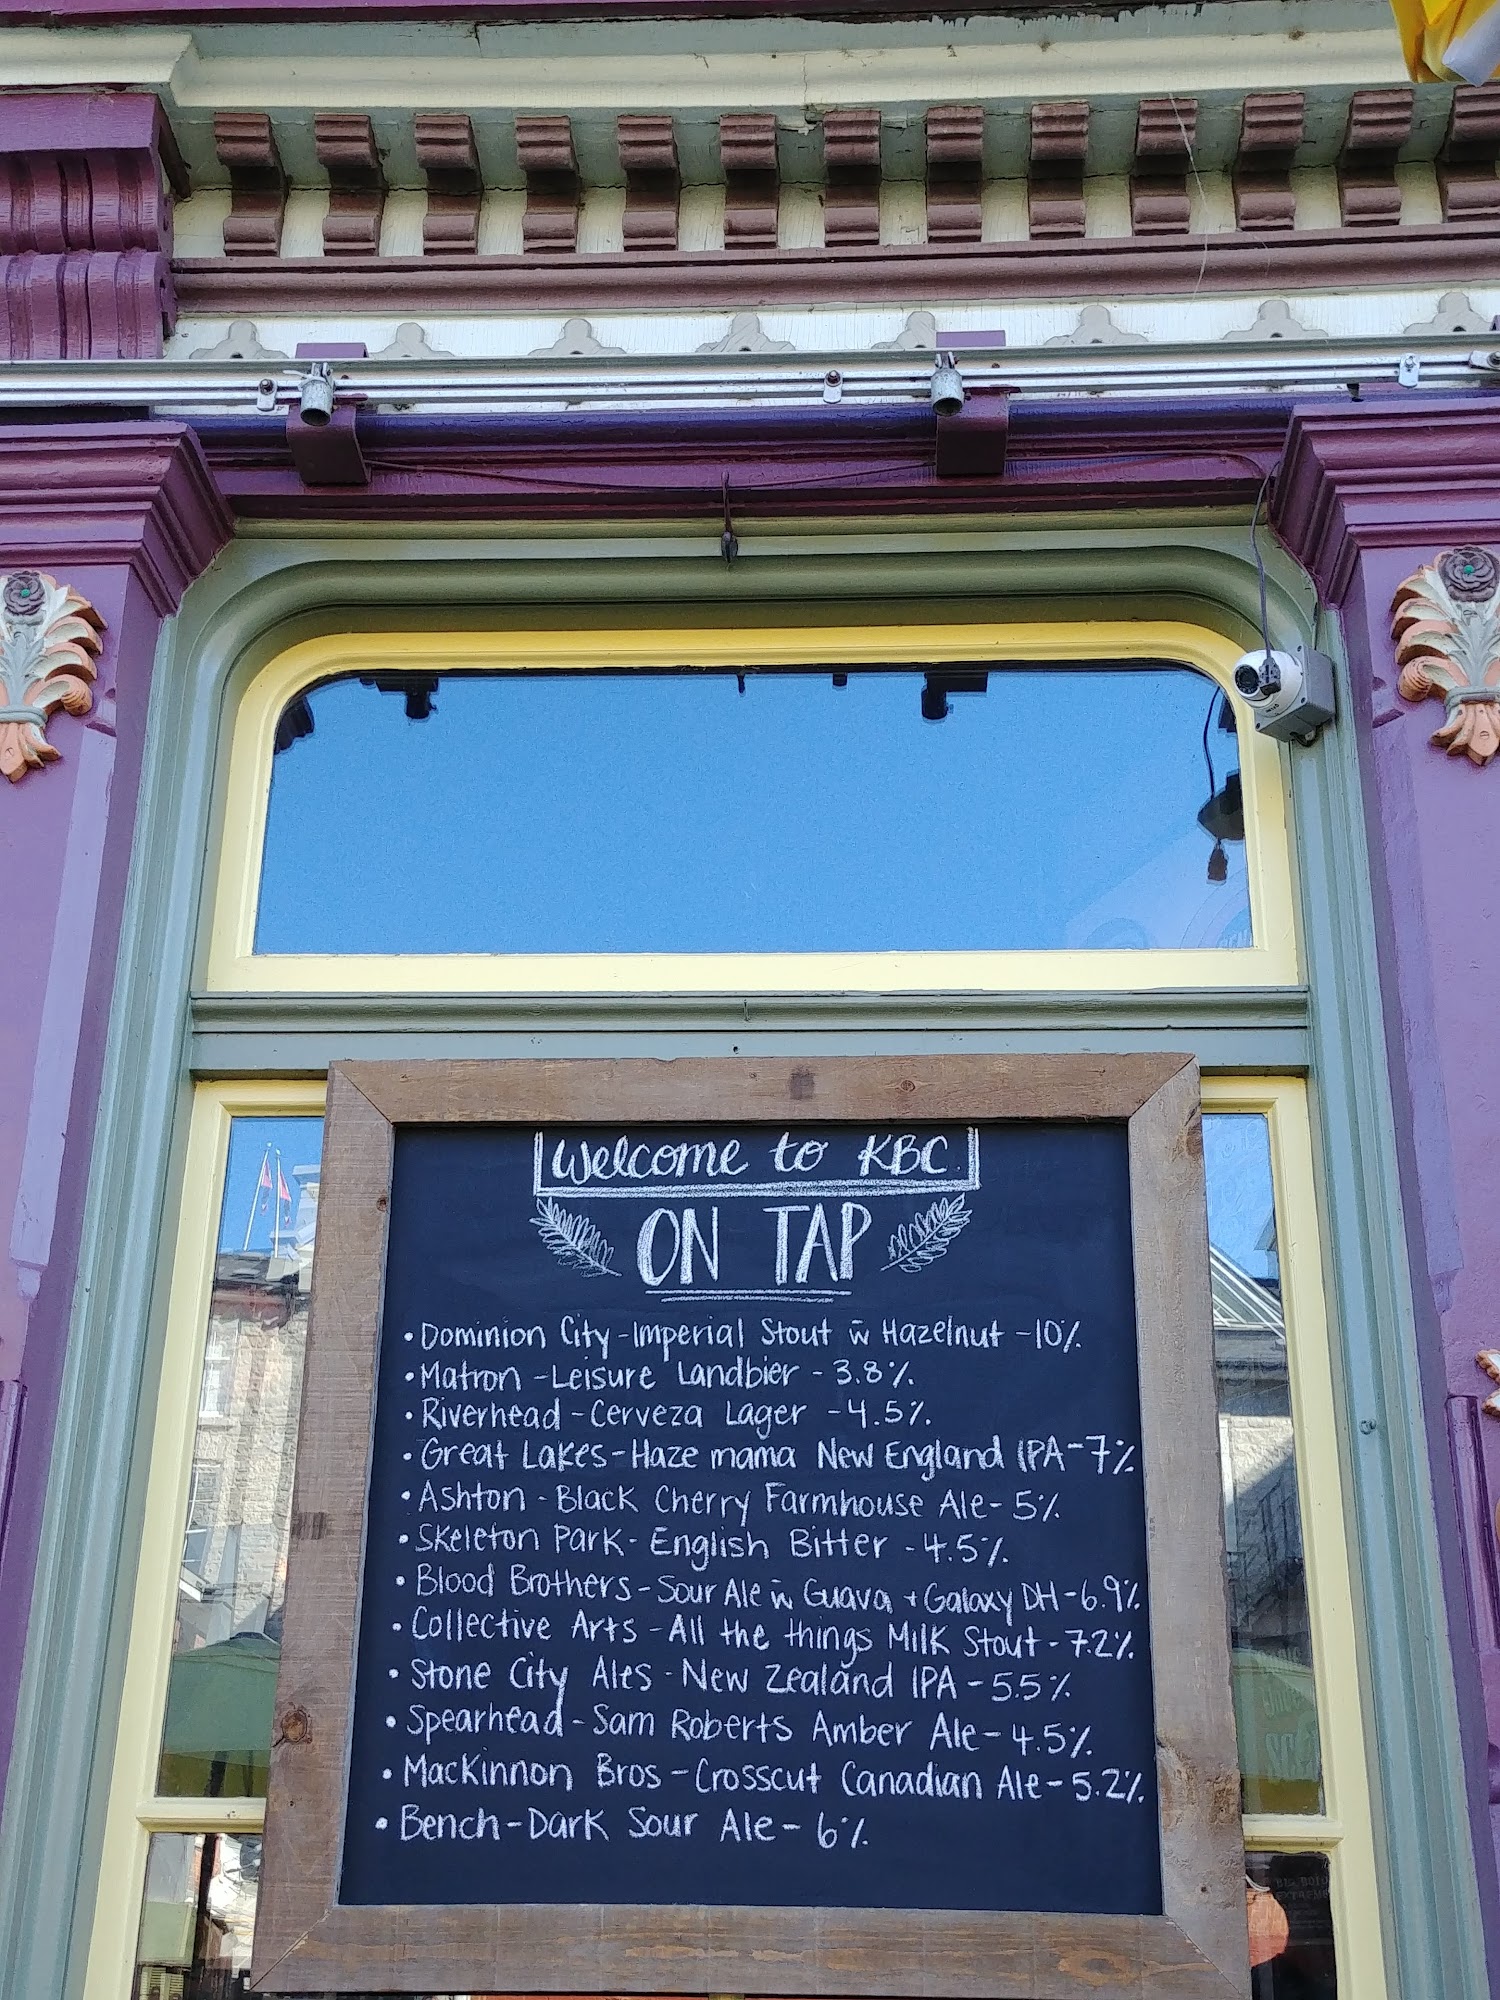 Welcome to KBC.
ON TAP
• Dominion City - Imperial Stout w̄ Hazelnut - 10%
• Matron - Leisure Landbier - 3.8%
• Riverhead - Cerveza Lager - 4.5%
• Great Lakes - Haze mama New England IPA - 7%
• Ashton - Black Cherry Farmhouse Ale - 5%
• Skeleton Park - English Bitter - 4.5%
• Blood Brothers - Sour Ale w̄ Guava + Galaxy DH - 6.9%
• Collective Arts - All the things Milk Stout - 7.2%
• Stone City Ales - New Zealand IPA - 5.5%
• Spearhead - Sam Roberts Amber Ale - 4.5%
• MacKinnon Bros - Crosscut Canadian Ale - 5.2%
• Bench - Dark Sour Ale - 6%